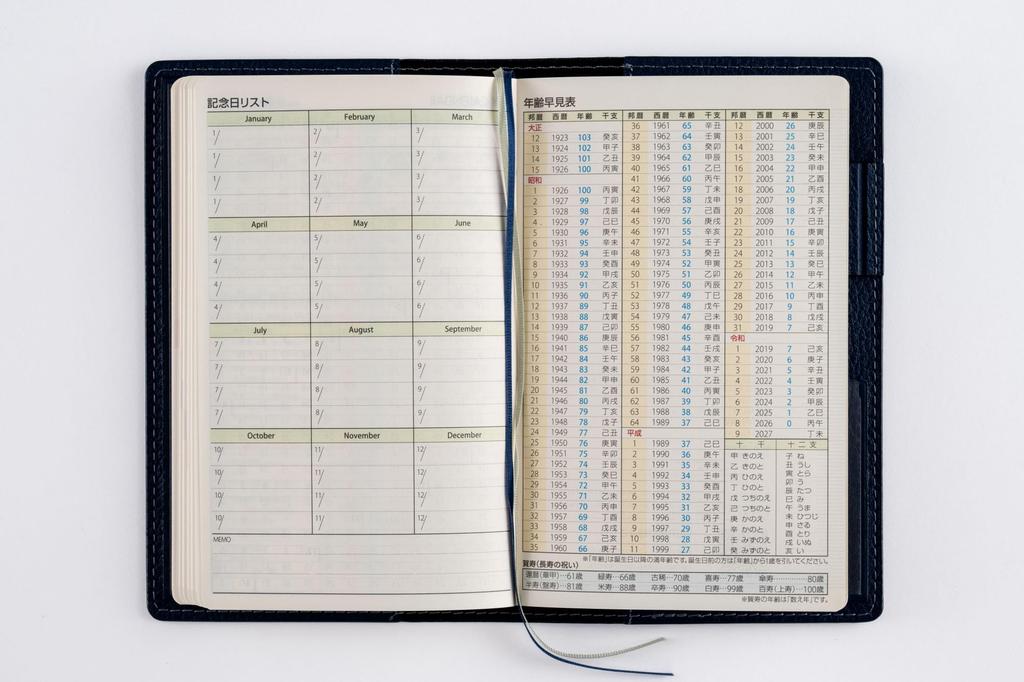 記念日リスト
January February March
1/ 2/ 3/
1/ 2/ 3/
1/ 2/ 3/
1/ 2/ 3/
April May June
4/ 5/ 6/
4/ 5/ 6/
4/ 5/ 6/
4/ 5/ 6/
July August September
7/ 8/ 9/
7/ 8/ 9/
7/ 8/ 9/
7/ 8/ 9/
October November December
10/ 11/ 12/
10/ 11/ 12/
10/ 11/ 12/
10/ 11/ 12/
MEMO
年齢早見表
邦暦 西暦 年齢 干支
大正
12 1923 103 癸亥
13 1924 102 甲子
14 1925 101 乙丑
15 1926 100 丙寅
昭和
1 1926 100 丙寅
2 1927 99 丁卯
3 1928 98 戊辰
4 1929 97 己巳
5 1930 96 庚午
6 1931 95 辛未
7 1932 94 壬申
8 1933 93 癸酉
9 1934 92 甲戌
10 1935 91 乙亥
11 1936 90 丙子
12 1937 89 丁丑
13 1938 88 戊寅
14 1939 87 己卯
15 1940 86 庚辰
16 1941 85 辛巳
17 1942 84 壬午
18 1943 83 癸未
19 1944 82 甲申
20 1945 81 乙酉
21 1946 80 丙戌
22 1947 79 丁亥
23 1948 78 戊子
24 1949 77 己丑
25 1950 76 庚寅
26 1951 75 辛卯
27 1952 74 壬辰
28 1953 73 癸巳
29 1954 72 甲午
30 1955 71 乙未
31 1956 70 丙申
32 1957 69 丁酉
33 1958 68 戊戌
34 1959 67 己亥
35 1960 66 庚子
邦暦 西暦 年齢 干支
36 1961 65 辛丑
37 1962 64 壬寅
38 1963 63 癸卯
39 1964 62 甲辰
40 1965 61 乙巳
41 1966 60 丙午
42 1967 59 丁未
43 1968 58 戊申
44 1969 57 己酉
45 1970 56 庚戌
46 1971 55 辛亥
47 1972 54 壬子
48 1973 53 癸丑
49 1974 52 甲寅
50 1975 51 乙卯
51 1976 50 丙辰
52 1977 49 丁巳
53 1978 48 戊午
54 1979 47 己未
55 1980 46 庚申
56 1981 45 辛酉
57 1982 44 壬戌
58 1983 43 癸亥
59 1984 42 甲子
60 1985 41 乙丑
61 1986 40 丙寅
62 1987 39 丁卯
63 1988 38 戊辰
64 1989 37 己巳
平成
1 1989 37 己巳
2 1990 36 庚午
3 1991 35 辛未
4 1992 34 壬申
5 1993 33 癸酉
6 1994 32 甲戌
7 1995 31 乙亥
8 1996 30 丙子
9 1997 29 丁丑
10 1998 28 戊寅
11 1999 27 己卯
邦暦 西暦 年齢 干支
12 2000 26 庚辰
13 2001 25 辛巳
14 2002 24 壬午
15 2003 23 癸未
16 2004 22 甲申
17 2005 21 乙酉
18 2006 20 丙戌
19 2007 19 丁亥
20 2008 18 戊子
21 2009 17 己丑
22 2010 16 庚寅
23 2011 15 辛卯
24 2012 14 壬辰
25 2013 13 癸巳
26 2014 12 甲午
27 2015 11 乙未
28 2016 10 丙申
29 2017 9 丁酉
30 2018 8 戊戌
31 2019 7 己亥
令和
1 2019 7 己亥
2 2020 6 庚子
3 2021 5 辛丑
4 2022 4 壬寅
5 2023 3 癸卯
6 2024 2 甲辰
7 2025 1 乙巳
8 2026 0 丙午
9 2027 丁未
十干 十二支
甲 きのえ
乙 きのと
丙 ひのえ
丁 ひのと
戊 つちのえ
己 つちのと
庚 かのえ
辛 かのと
壬 みずのえ
癸 みずのと
子 ね
丑 うし
寅 とら
卯 う
辰 たつ
巳 み
午 うま
未 ひつじ
申 さる
酉 とり
戌 いぬ
亥 い
※「年齢」は誕生日以降の満年齢です。誕生日前の方は「年齢」から1歳を引いてください。
賀寿(長寿の祝い)
還暦(華甲)…61歳 緑寿…66歳 古稀…70歳 喜寿…77歳 傘寿………80歳
半寿(盤寿)…81歳 米寿…88歳 卒寿…90歳 白寿…99歳 百寿(上寿)…100歳
※賀寿の年齢は「数え年」です。